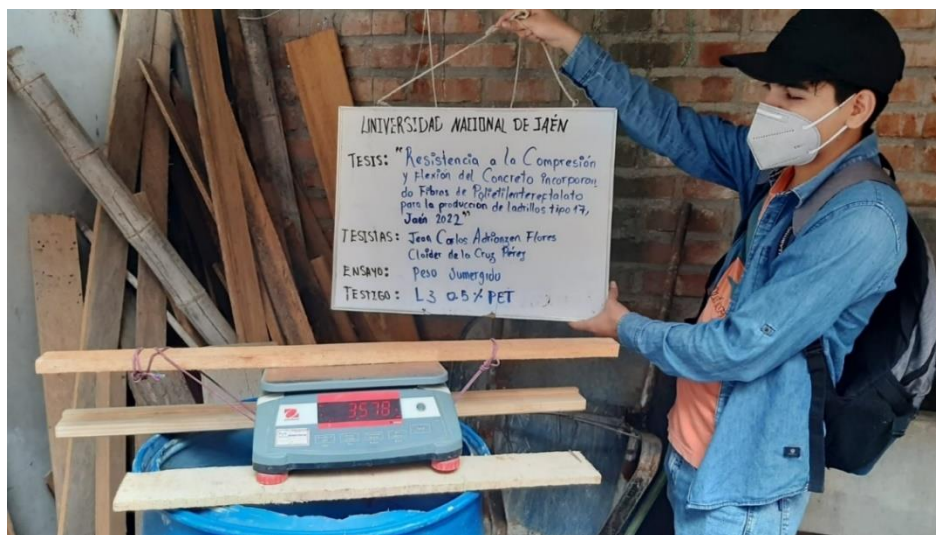 UNIVERSIDAD NACIONAL DE JAÉN
TESIS: "Resistencia a la Compresión
y Flexión del Concreto incorporan
do Fibras de Polietilentereftalato
para la producción de ladrillos tipo 17,
Jaén 2022"
TESISTAS: Jean Carlos Adrianzen Flores
Cloider de la Cruz Pérez
ENSAYO: Peso Sumergido
TESTIGO: L3 0.5% PET
OHAUS
3,578